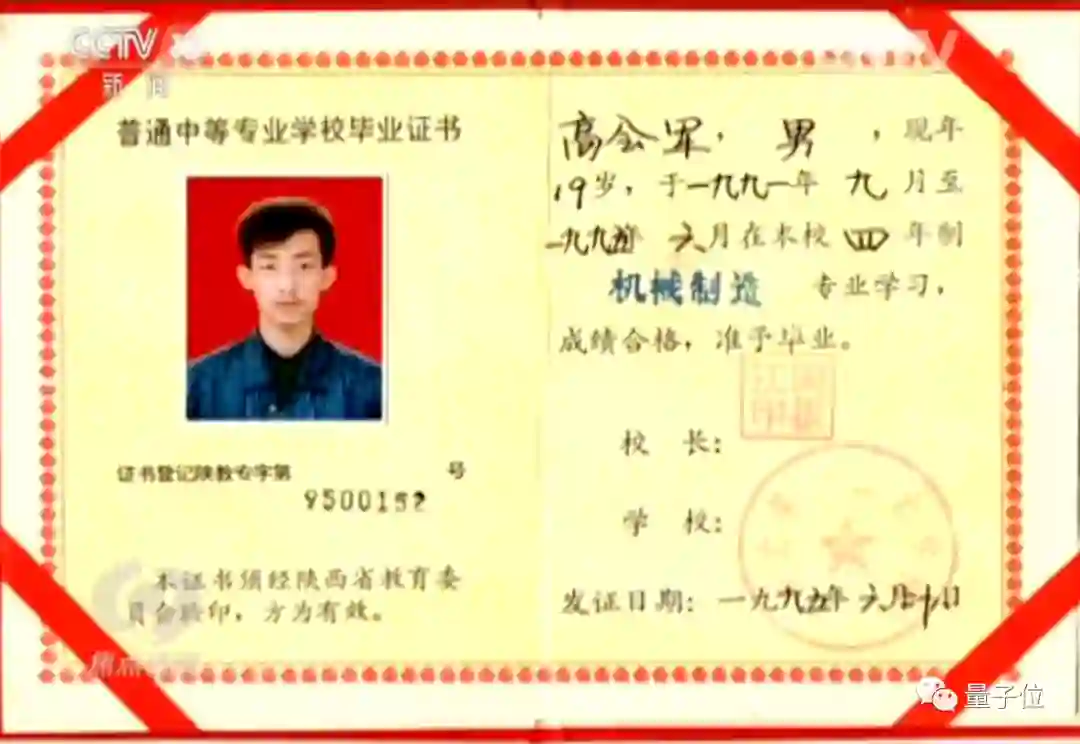 CCTV
新闻
普通中等专业学校毕业证书
证书登记陕教专字第 号
9500152
本证书须经陕西省教育委
员会验印，方为有效。
高公军，男，现年
19岁，于一九九一年九月至
一九九五年六月在本校四年制
机械制造 专业学习，
成绩合格，准予毕业。
校 长：
学 校：
发证日期：一九九五年六月十日
量子位